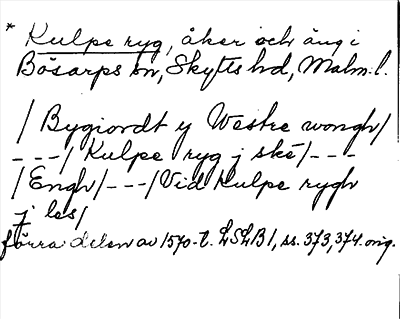 * Kulpe ryg, åker och äng i
Bösarps sn, Skytts hd, Malm. l.
/ Bygiordt y Westre wongh /
- - - / Kulpe ryg j ske / - - -
/ Engh / - - - / Vid Kulpe rygh
j les /
förra delen av 1570-t. LSLB 1, ss. 373, 374. orig.